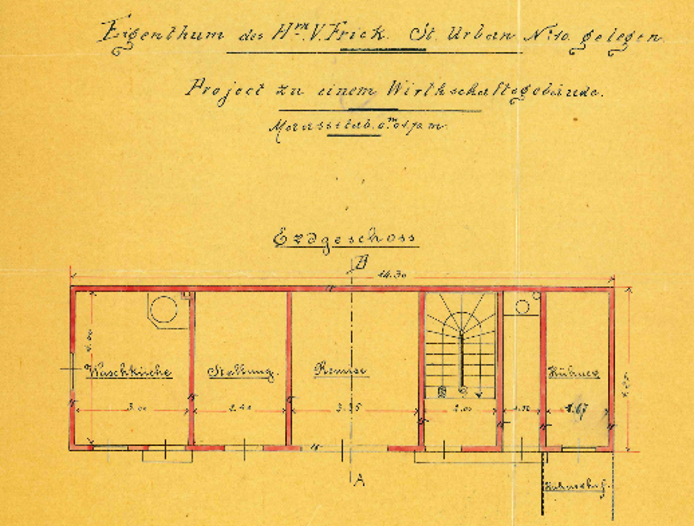 Eigenthum des Hrn. V. Frick. St. Urban No 10. gelegen.
Project zu einem Wirthschaftsgebäude.
Maassstab 0.m01 p. m.
Erdgeschoss
B
14.30
Waschküche
Stallung.
Remise
Hühner
3.00
2.40
3.35
2.00
1.67
A
Hühnerhof.